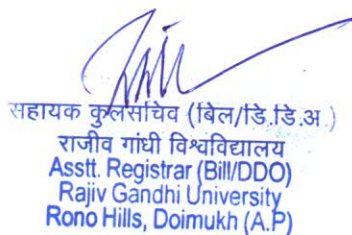 सहायक कुलसचिव (बिल/डि.डि.अ.)
राजीव गांधी विश्वविद्यालय
Asstt. Registrar (Bill/DDO)
Rajiv Gandhi University
Rono Hills, Doimukh (A.P)